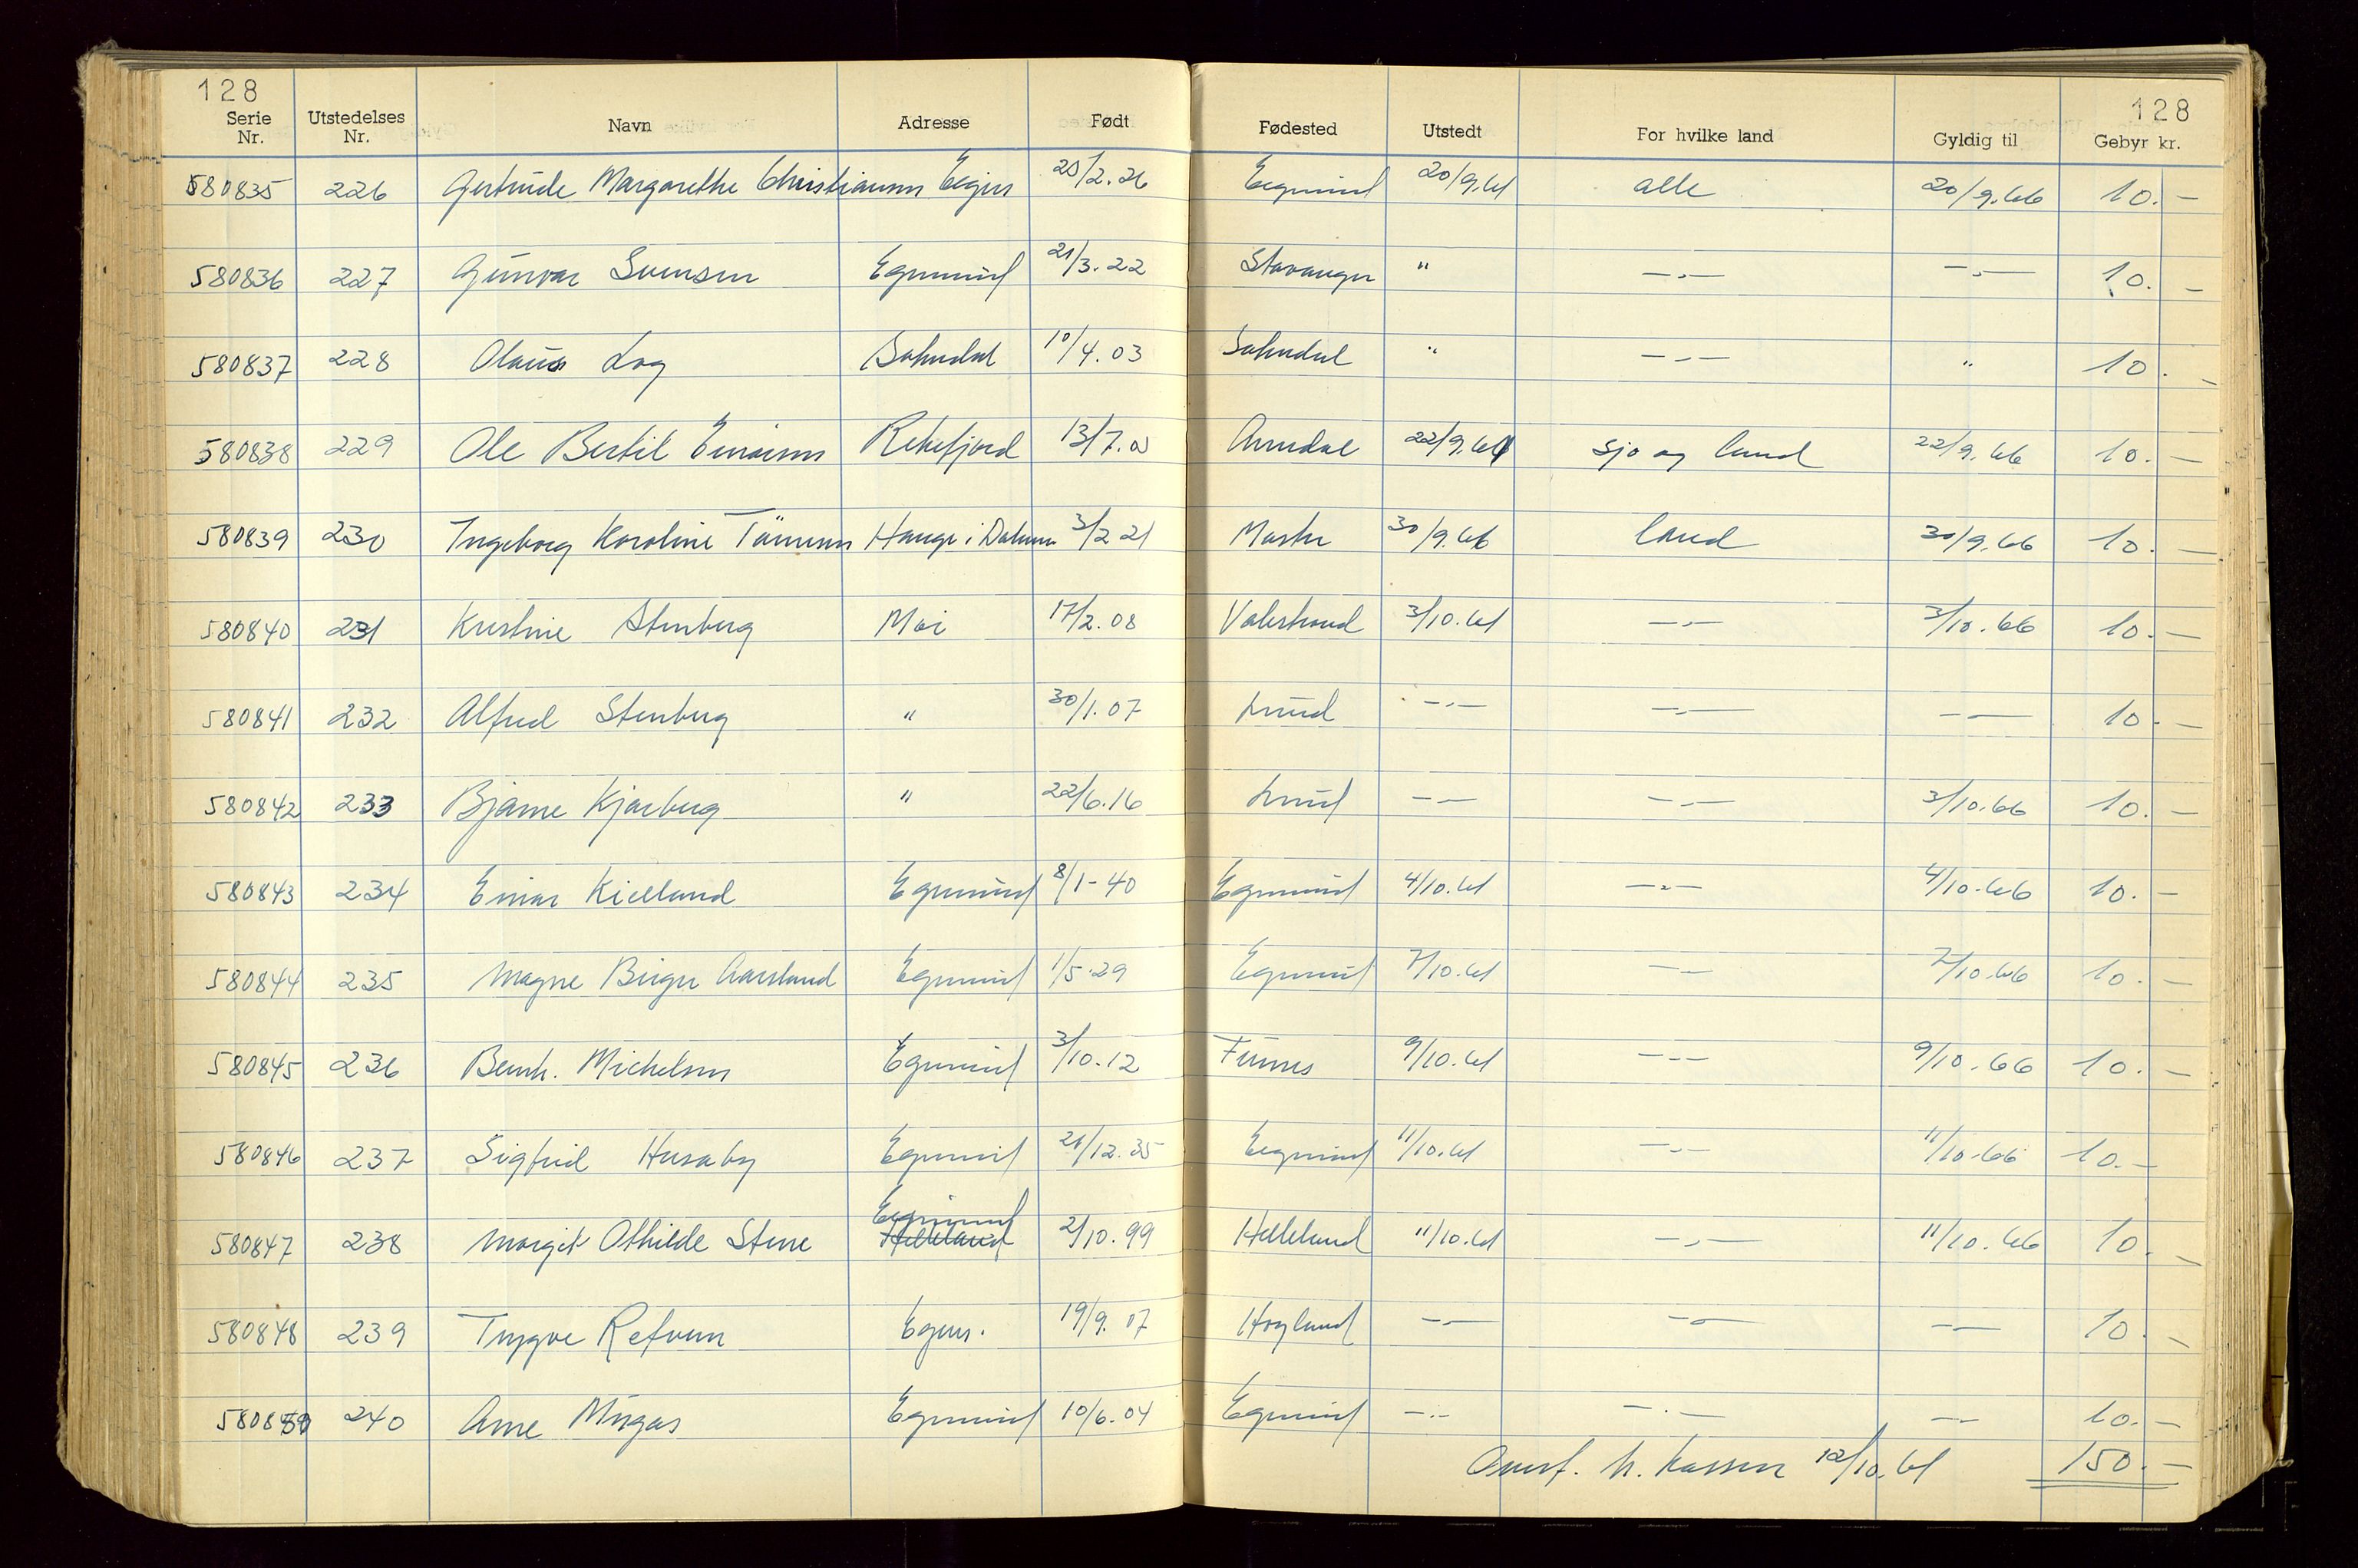 128 128
Serie Nr. Utstedelses Nr. Navn Adresse Født Fødested Utstedt For hvilke land Gyldig til Gebyr kr.
580835 226 Gertrude Margarethe Christiansen 25/2.26 Eegersund 20/9.61 alle 20/9.66 10.-
580836 227 Gunvar Svensen Egersund 21/3.22 Stavanger " -"- -"- 10.-
580837 228 Olaus Log Sokndal 10/4.03 Sokndal " -"- " 10.-
580838 229 Ole Bertil Einarsen Rekefjord 13/7. Arendal 22/9.61 Sjø og land 22/9.66 10.-
580839 230 Ingeborg Karoline Hauge i Dalane 3/2 21 30/9.66 land 30/9.66 10.-
580840 231 Kristine Stenberg Moi 17/2.08 Valestrand 3/10.61 -"- 3/10.66 10.-
580841 232 Alfred Stenberg " 30/1.07 Lund -"- -"- -"- 10.-
580842 233 Bjarne Kjørberg " 22/6.16 Lund -"- -"- 3/10.66 10.-
580843 234 Einar Kielland Egersund 8/1-40 Egersund 4/10.61 -"- 4/10.66 10.-
580844 235 Magne Birger Aarstand Egersund 1/5.29 Egersund 7/10.61 -"- 7/10.66 10.-
580845 236 Bernh. Michelsen Egersund 3/10.12 Funnes 9/10.61 -"- 9/10.66 10.-
580846 237 Sigfrid Husaby Egersund 21/12.35 Eegersund 11/10.61 -"- 11/10.66 10.-
Eegersund
580847 238 Margit Othilde Stene Helleland 2/10.99 Helleland 11/10.61 -"- 11/10.66 10.-
580848 239 Trygve Refveum Egers. 19/9.07 Høyland -"- -"- -"- 10.-
580850 240 Arne Mygas Egersund 10/6.04 Egersund -"- -"- -"- 10.-
Overf. h. kassen 12/10.61 150.-